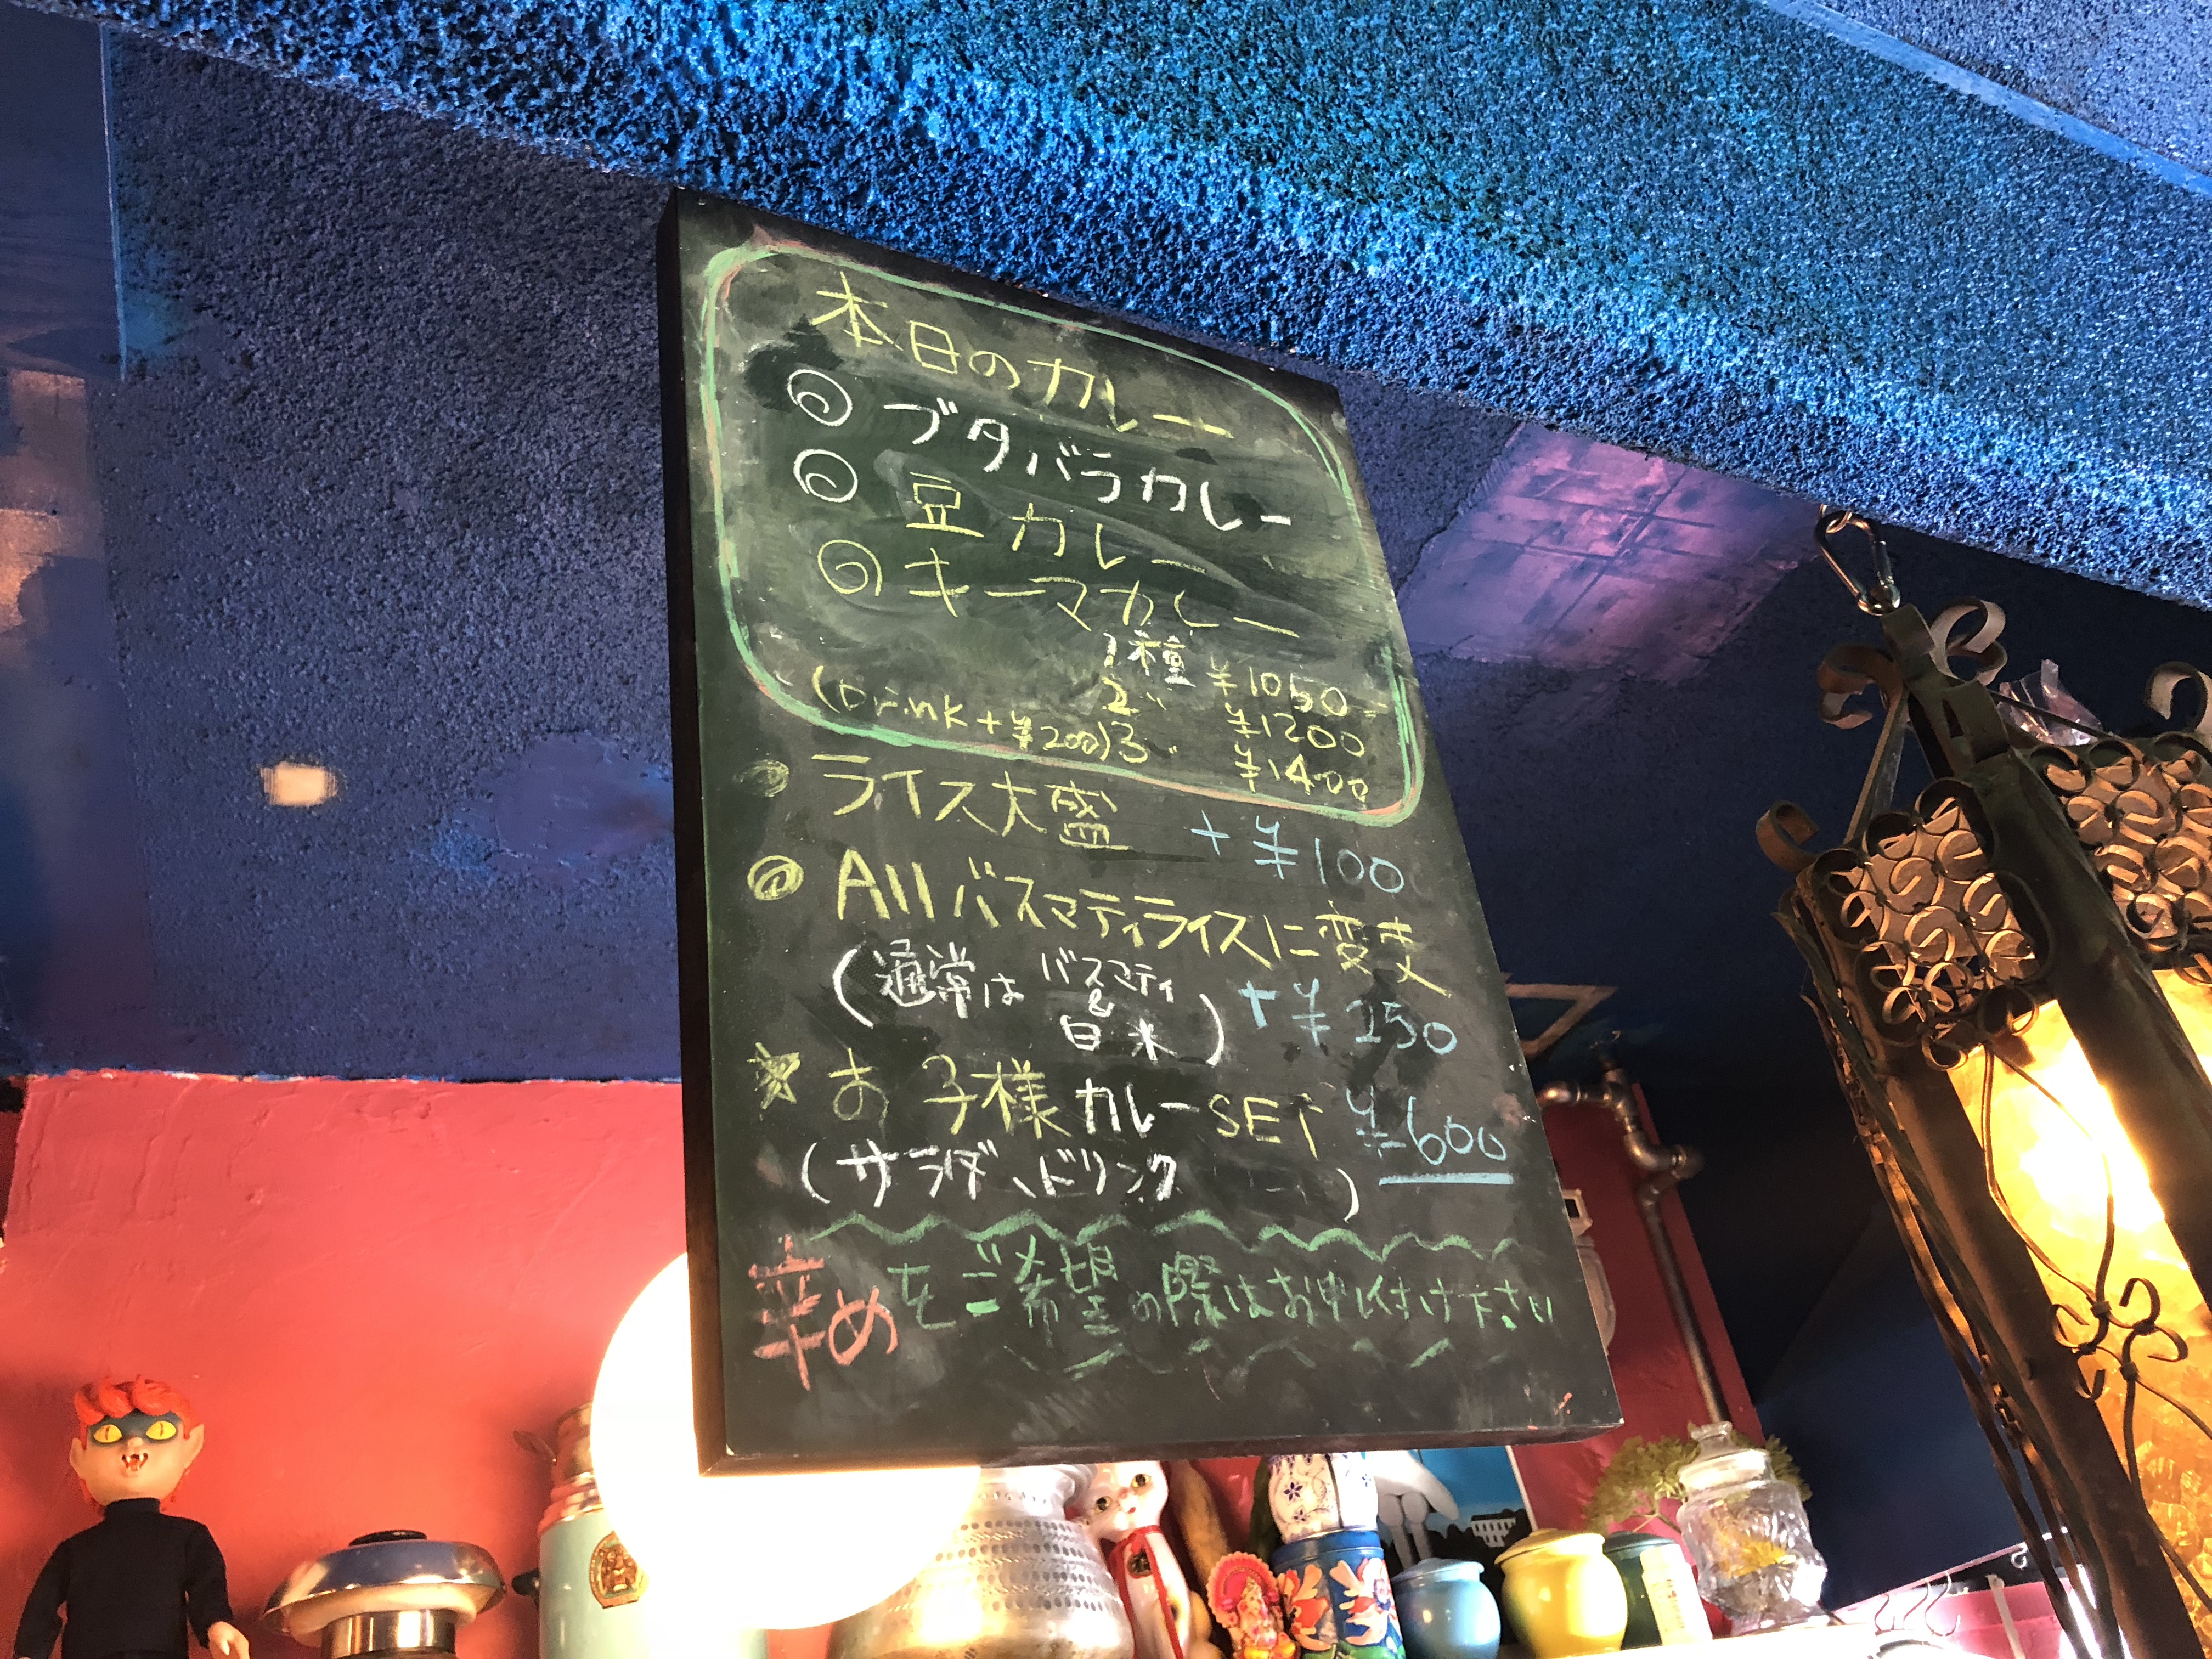 本日のカレー
ブタバラカレー
豆カレー
キーマカレー
1種 ¥1050
2〃 ¥1200
(Drink+¥200) 3〃 ¥1400
ライス大盛 +¥100
Allバスマティライスに変更
(通常は バスマティ & 日米) +¥150
お子様カレーSET ¥600
(サラダ、ドリンク )
辛めをご希望の際はお申し付け下さい